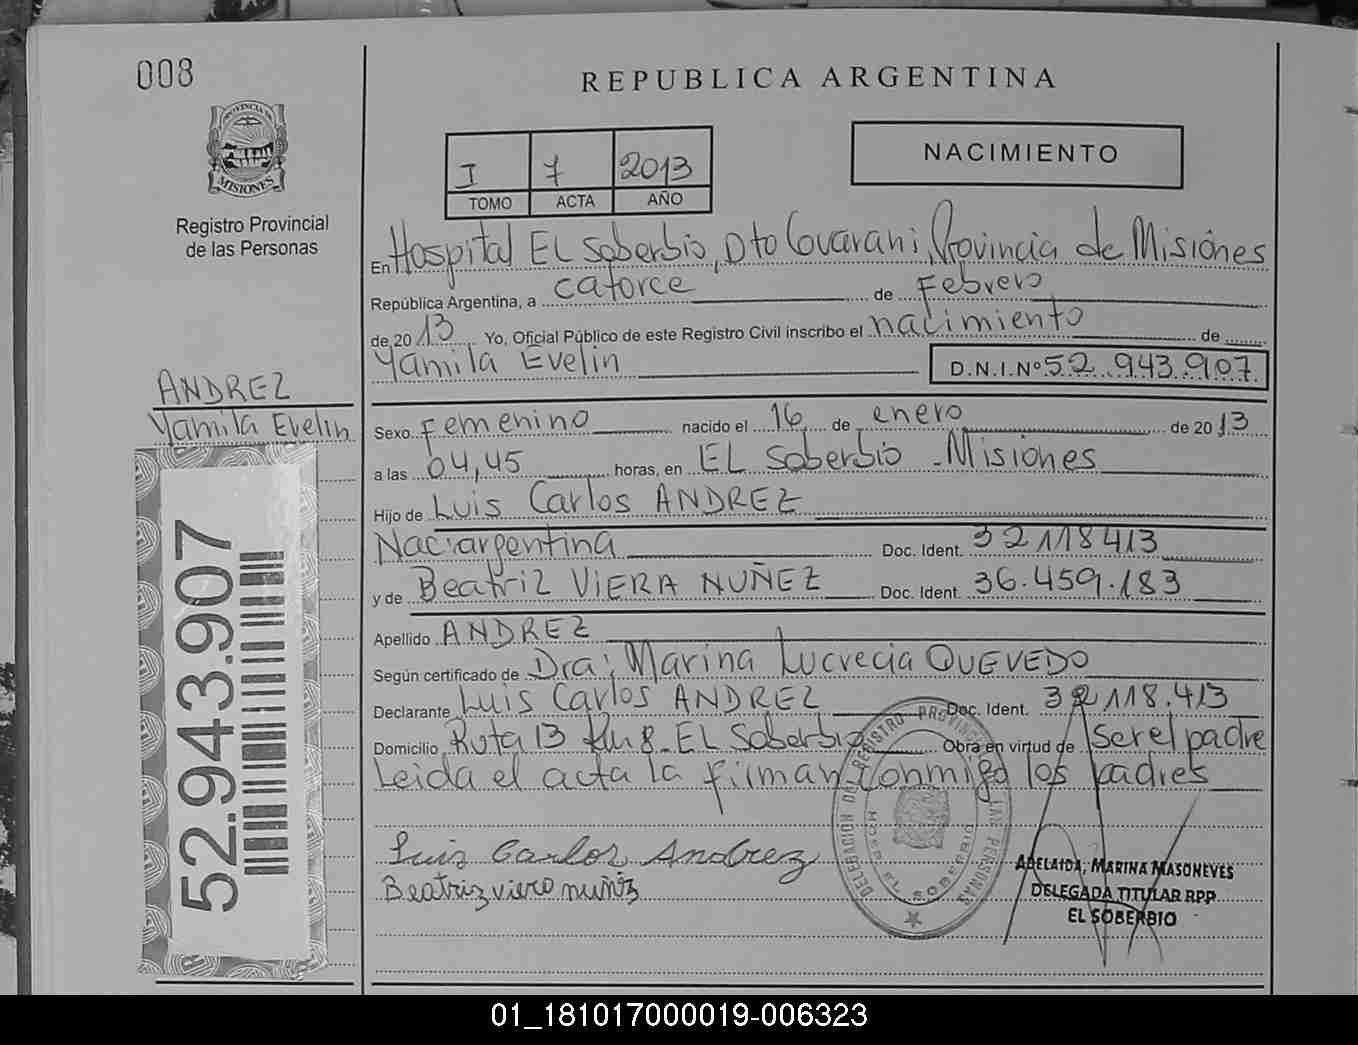 008
REPUBLICA ARGENTINA
PROVINCIA DE
MISIONES
Registro Provincial
de las Personas
I 7 2013
TOMO ACTA AÑO
NACIMIENTO
En Hospital EL Soberbio, Dto Guarani, Provincia de Misiones
República Argentina, a catorce de Febrero
de 2013 Yo, Oficial Público de este Registro Civil inscribo el nacimiento de
Yamila Evelin D.N.I.Nº 52.943.907
ANDREZ
Yamila Evelin
Sexo Femenino nacido el 16 de enero de 2013
a las 04,45 horas, en EL Soberbio - Misiones
Hijo de Luis Carlos ANDREZ
Nac: argentina Doc. Ident. 32118413
y de Beatriz VIERA NUÑEZ Doc. Ident. 36.459.183
Apellido ANDREZ
Según certificado de Dra: Marina Lucrecia QUEVEDO
Declarante Luis Carlos ANDREZ Doc. Ident. 32118.413
Domicilio Ruta 13 Km 8 - EL Soberbio Obra en virtud de ser el padre
Leida el acta la firman conmigo los padres
Luis Carlos Andrez
Beatriz viera nuñiz
52.943.907
DELEGACION DEL REGISTRO PROVINCIAL DE LAS PERSONAS
EL SOBERBIO
ADELAIDA, MARINA MASONEVES
DELEGADA TITULAR RPP
EL SOBERBIO
01_181017000019-006323